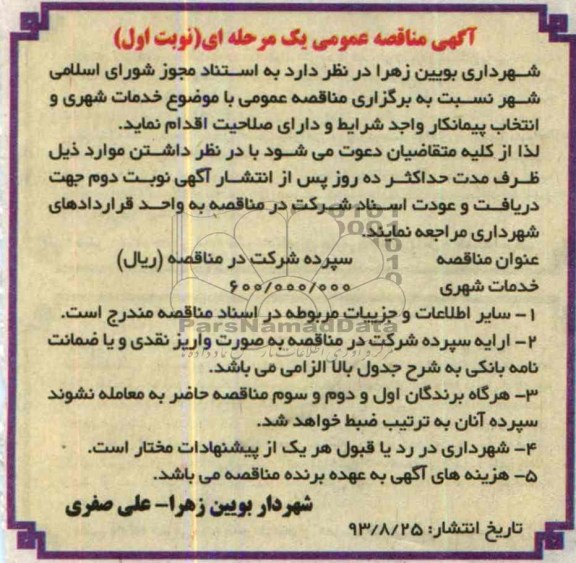 آگهی مناقصه عمومی یک مرحله ای(نوبت اول)
شهرداری بویین زهرا در نظر دارد به استناد مجوز شورای اسلامی
شهر نسبت به برگزاری مناقصه عمومی با موضوع خدمات شهری و
انتخاب پیمانکار واجد شرایط و دارای صلاحیت اقدام نماید.
لذا از کلیه متقاضیان دعوت می شود با در نظر داشتن موارد ذیل
ظرف مدت حداکثر ده روز پس از انتشار آگهی نوبت دوم جهت
دریافت و عودت اسناد شرکت در مناقصه به واحد قراردادهای
شهرداری مراجعه نمایند.
عنوان مناقصه سپرده شرکت در مناقصه (ریال)
خدمات شهری ۶۰۰/۰۰۰/۰۰۰
۱- سایر اطلاعات و جزییات مربوطه در اسناد مناقصه مندرج است.
ParsNamadData
۲- ارایه سپرده شرکت در مناقصه به صورت واریز نقدی و یا ضمانت
نامه بانکی به شرح جدول بالا الزامی می باشد.
۳- هرگاه برندگان اول و دوم و سوم مناقصه حاضر به معامله نشوند
سپرده آنان به ترتیب ضبط خواهد شد.
۴- شهرداری در رد یا قبول هر یک از پیشنهادات مختار است.
۵- هزینه های آگهی به عهده برنده مناقصه می باشد.
شهردار بویین زهرا- علی صفری
تاریخ انتشار: ۹۳/۸/۲۵